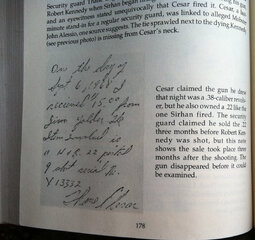 Security guard Thane
Robert Kennedy when Sirhan began
and an eyewitness stated unequivocally that Cesar fired it. Cesar, a
minute stand-in for a regular security guard, was linked to alleged
John Alessio, one source suggests. The tie sprawled next to the dying Kennedy
(see previous photo) is missing from Cesar's neck.
On the day of
Sept 6, 1968 I
received $15.00 from
Jim Yoder. The
Item Involved is
a H & R. 22 pistol
9 shot serial No.
Y 13332
Thane Cesar
Cesar claimed the gun he drew
that night was a .38-caliber revolv-
er, but he also owned a .22 like the
one Sirhan fired. The security
guard claimed he sold the .22
three months before Robert Ken-
nedy was shot, but this note
shows the sale took place three
months after the shooting. The
gun disappeared before it could
be examined.
178